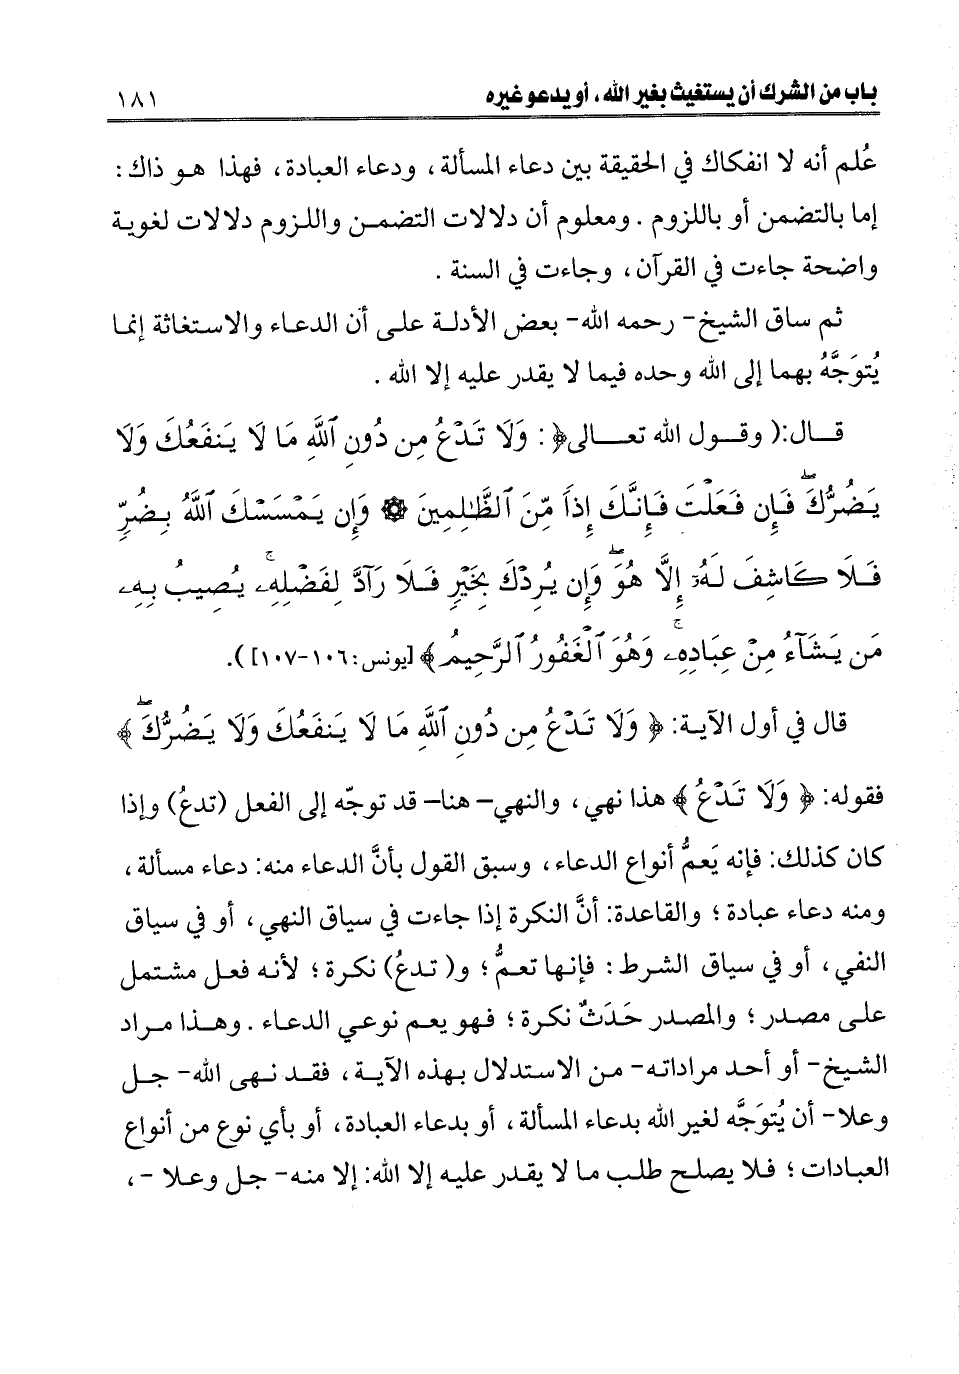 باب من الشرك أن يستغيث بغير الله، أو يدعو غيره ١٨١
عُلم أنه لا انفكاك في الحقيقة بين دعاء المسألة، ودعاء العبادة، فهذا هو ذاك:
إما بالتضمن أو باللزوم. ومعلوم أن دلالات التضمن واللزوم دلالات لغوية
واضحة جاءت في القرآن، وجاءت في السنة.
ثم ساق الشيخ- رحمه الله- بعض الأدلة على أن الدعاء والاستغاثة إنما
يُتوَجَّهُ بهما إلى الله وحده فيما لا يقدر عليه إلا الله.
قال:( وقول الله تعالى﴿: وَلَا تَدْعُ مِن دُونِ ٱللَّهِ مَا لَا يَنفَعُكَ وَلَا
يَضُرُّكَۖ فَإِن فَعَلْتَ فَإِنَّكَ إِذاً مِّنَ ٱلظَّٰلِمِينَ ۞ وَإِن يَمْسَسْكَ ٱللَّهُ بِضُرٍّ
فَلَا كَاشِفَ لَهُۥٓ إِلَّا هُوَۖ وَإِن يُرِدْكَ بِخَيْرٍ فَلَا رَآدَّ لِفَضْلِهِۦۚ يُصِيبُ بِهِۦ
مَن يَشَآءُ مِنْ عِبَادِهِۦۚ وَهُوَ ٱلْغَفُورُ ٱلرَّحِيمُ﴾ [يونس:١٠٦-١٠٧]).
قال في أول الآية: ﴿ وَلَا تَدْعُ مِن دُونِ ٱللَّهِ مَا لَا يَنفَعُكَ وَلَا يَضُرُّكَۖ ﴾
فقوله: ﴿ وَلَا تَدْعُ ﴾ هذا نهي، والنهي- هنا- قد توجّه إلى الفعل (تدعُ) وإذا
كان كذلك: فإنه يَعمُّ أنواع الدعاء، وسبق القول بأنَّ الدعاء منه: دعاء مسألة،
ومنه دعاء عبادة؛ والقاعدة: أنَّ النكرة إذا جاءت في سياق النهي، أو في سياق
النفي، أو في سياق الشرط: فإنها تعمُّ؛ و( تدعُ) نكرة؛ لأنه فعل مشتمل
على مصدر؛ والمصدر حَدَثٌ نكرة؛ فهو يعم نوعي الدعاء. وهذا مراد
الشيخ- أو أحد مراداته- من الاستدلال بهذه الآية، فقد نهى الله- جل
وعلا- أن يُتوَجَّه لغير الله بدعاء المسألة، أو بدعاء العبادة، أو بأي نوع من أنواع
العبادات؛ فلا يصلح طلب ما لا يقدر عليه إلا الله: إلا منه- جل وعلا -،